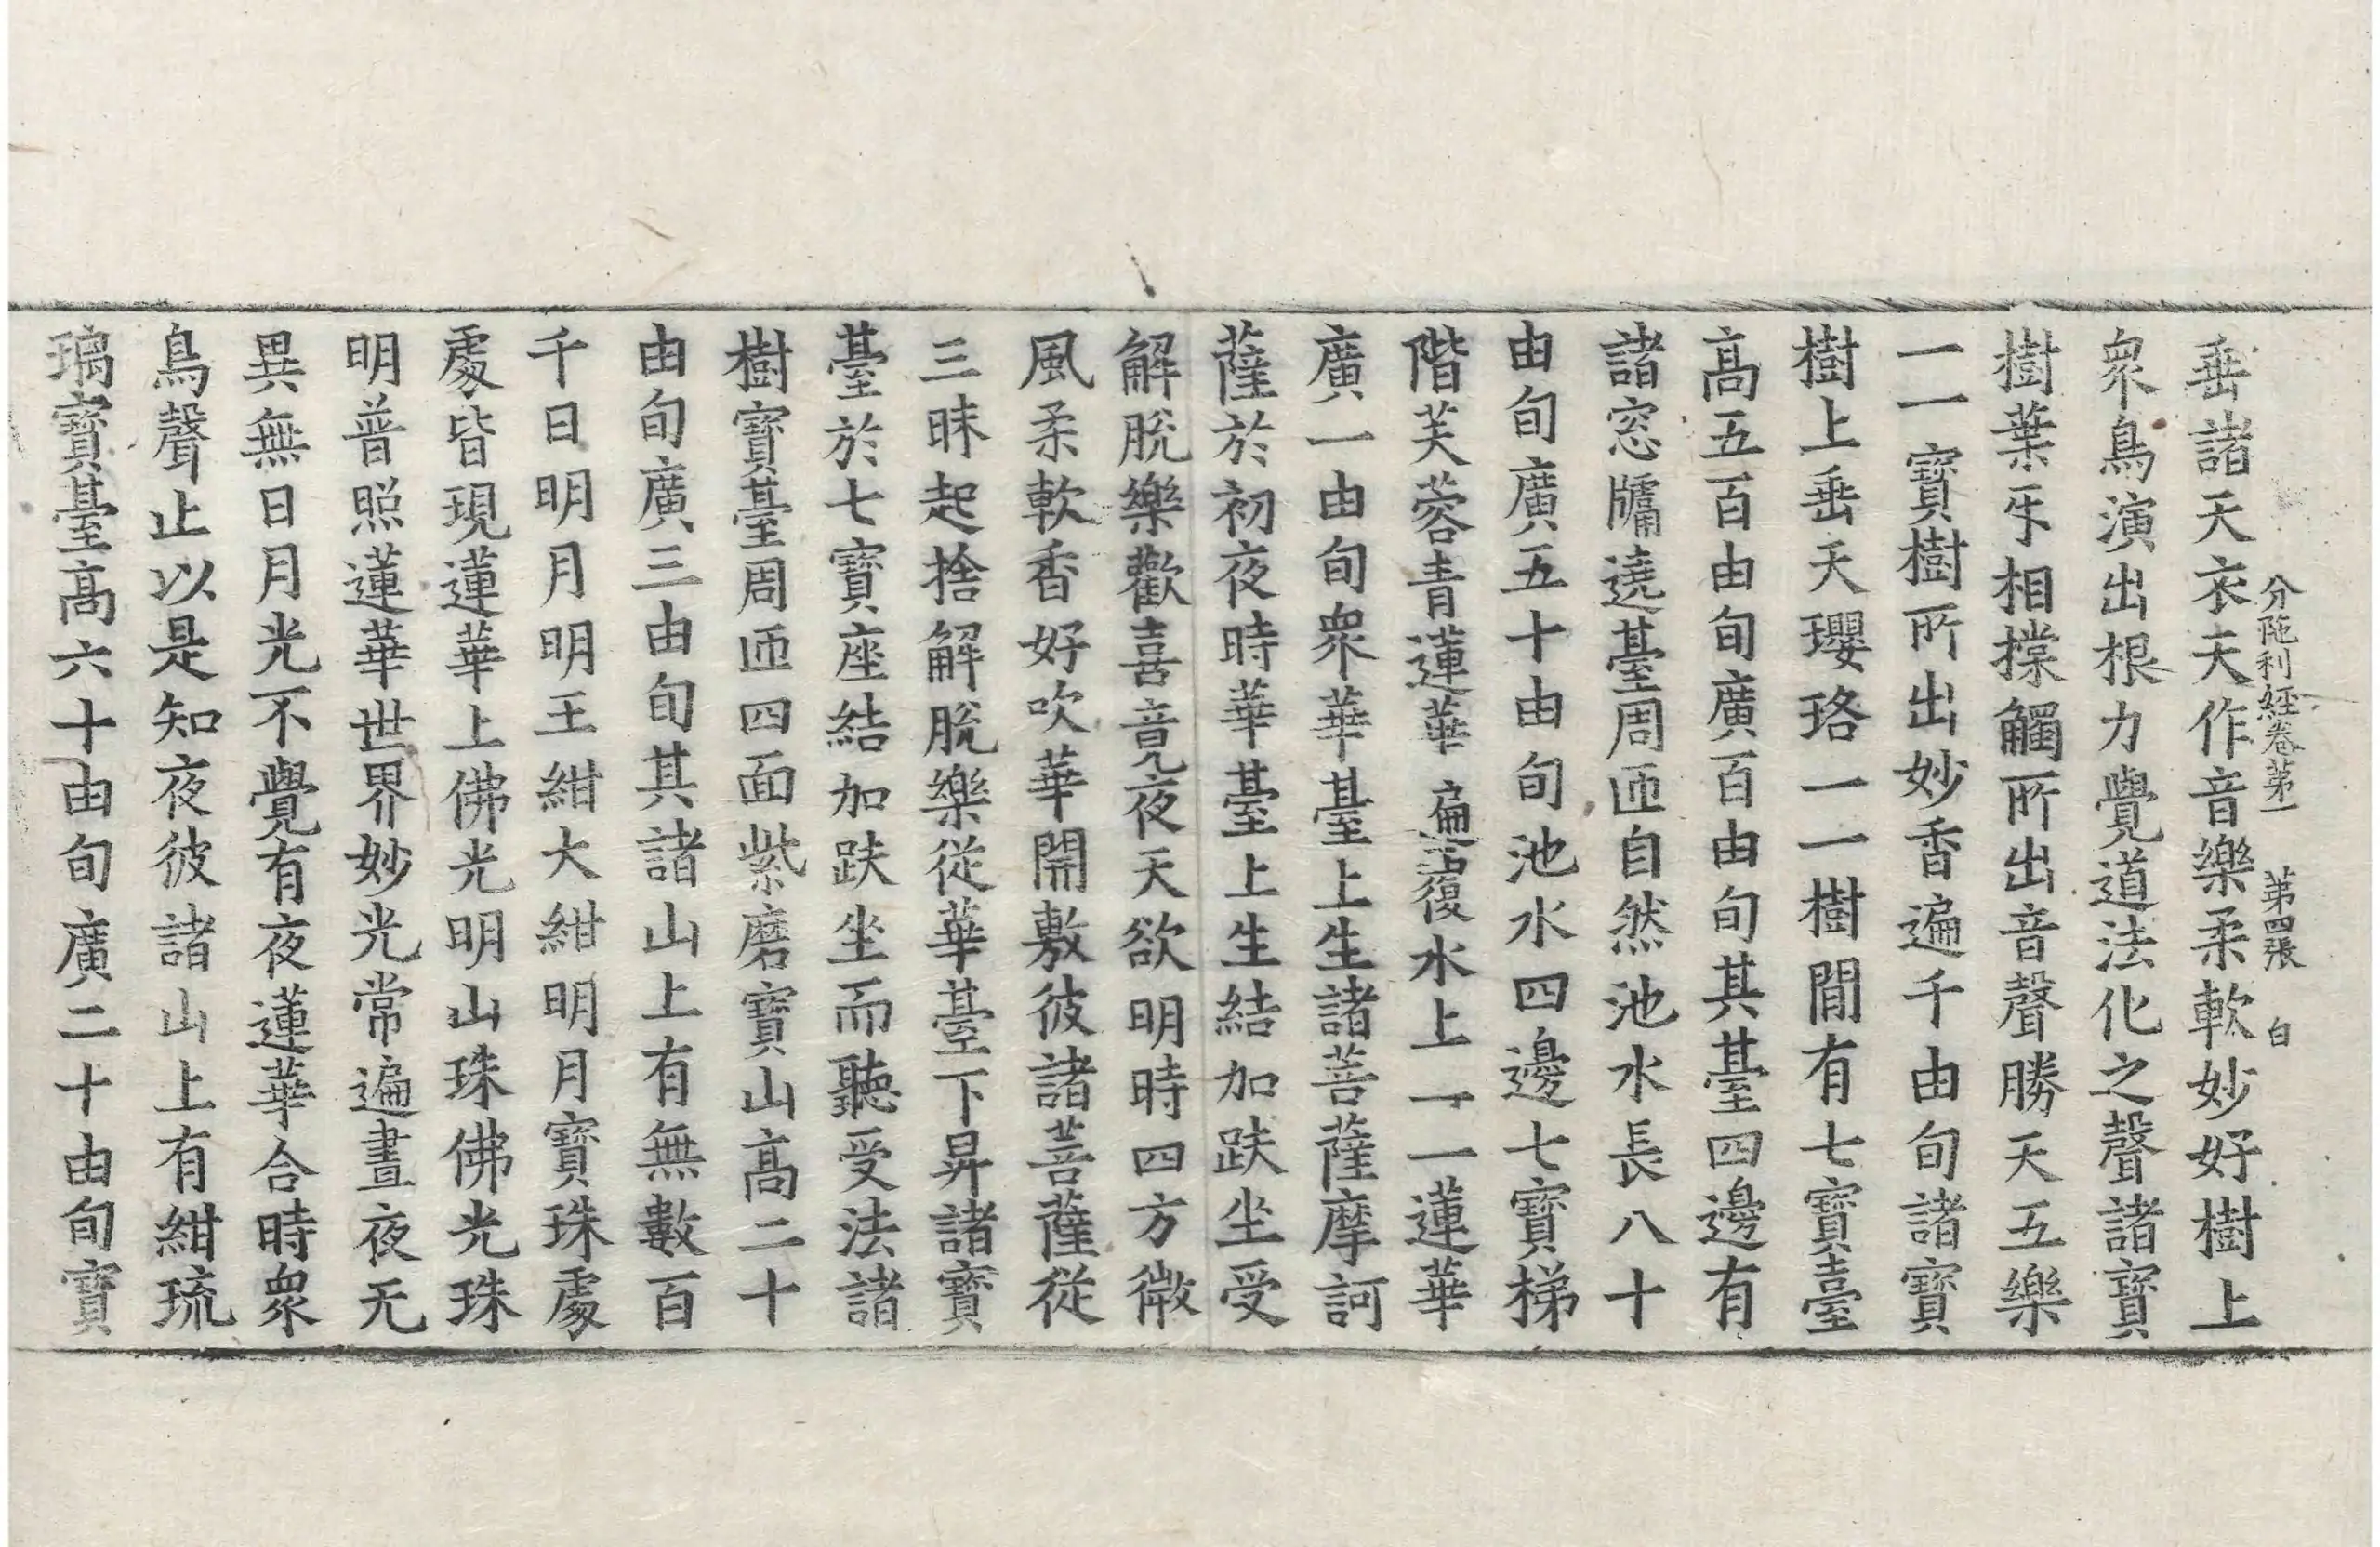 分陁利經卷第一 第四張 白
垂諸天衣天作音樂柔軟妙好樹上
衆鳥演出根力覺道法化之聲諸寶
樹葉𤘽相摚觸所出音聲勝天五樂
一一寶樹所出妙香遍千由旬諸寶
樹上垂天瓔珞一一樹閒有七寶臺
高五百由旬廣百由旬其臺四邊有
諸窓牖遶臺周匝自然池水長八十
由旬廣五十由旬池水四邊七寶梯
階芙蓉青蓮華 復水上一一蓮華
廣一由旬衆華臺上生諸菩薩摩訶
薩於初夜時華臺上生結加趺坐受
解脫樂歡喜竟夜天欲明時四方微
風柔軟香好吹華開敷彼諸菩薩從
三昧起捨解脫樂從華臺下昇諸寶
臺於七寶座結加趺坐而聽受法諸
樹寶臺周匝四面紫磨寶山高二十
由旬廣三由旬其諸山上有無數百
千日明月明王紺大紺明月寶珠處
處皆現蓮華上佛光明山珠佛光珠
明普照蓮華世界妙光常遍晝夜无
異無日月光不覺有夜蓮華合時衆
鳥聲止以是知夜彼諸山上有紺琉
璃寶臺高六十由旬廣二十由旬寶